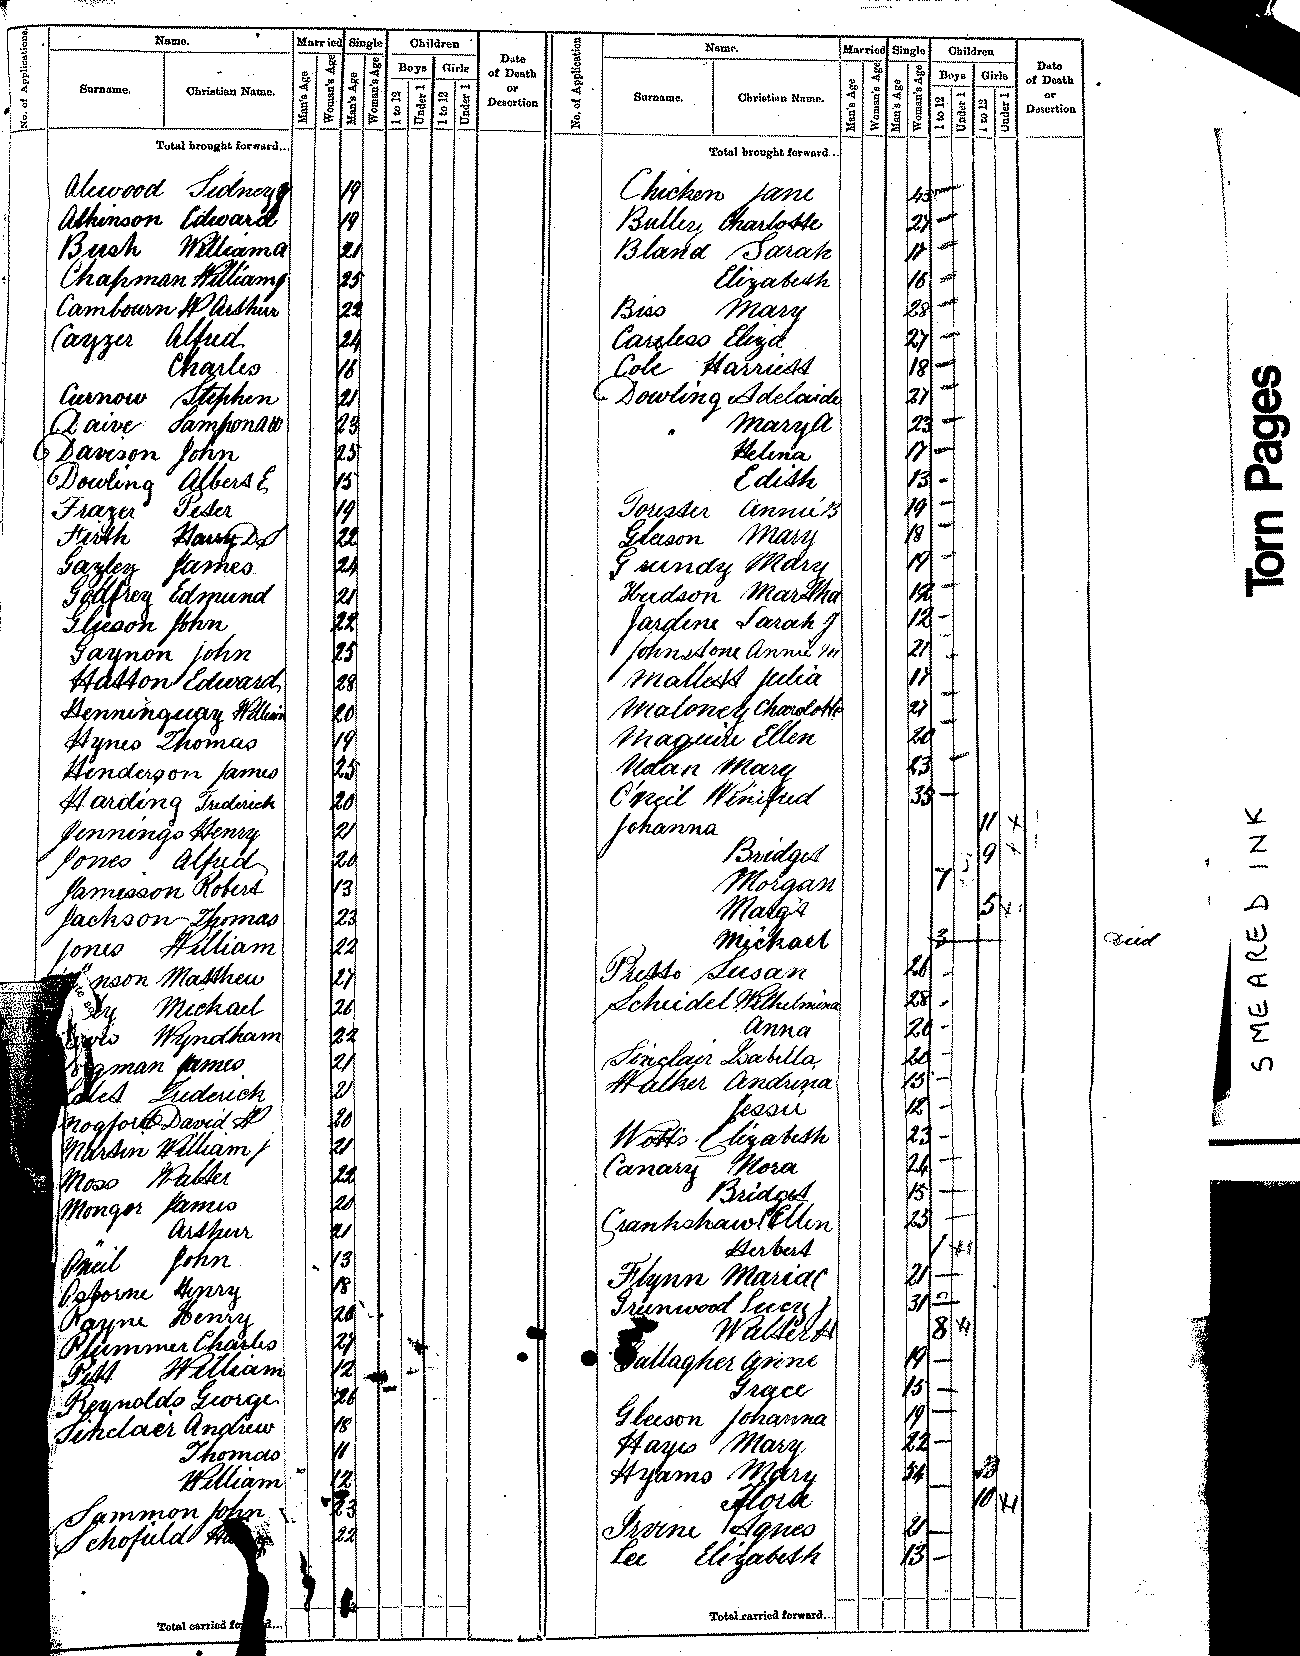 No. of Applications.
Name.
Married
Single
Children
Date of Death or Desertion
Surname.
Christian Name.
Man's Age
Woman's Age
Man's Age
Woman's Age
Boys
Girls
1 to 12
Under 1
1 to 12
Under 1
Total brought forward...
Sidney 19
Atkinson Edward 19
Bush William A 21
Chapman William 25
Cambourn W Arthur 22
Cayzer Alfred 24
Charles 16
Curnow Stephen 21
23
Davison John 25
Dowling Albert E 15
Frazer Peter 19
Firth Harry D 22
Gazley James 24
Godfrey Edmund 21
Gleeson John 22
Gaynon John 25
Hatton Edward 28
Henninguay William 20
Hynes Thomas 19
Henderson James 25
Harding Frederick 20
Jennings Henry 21
Jones Alfred 20
Jamesson Robert 13
Jackson Thomas 23
Jones William 22
nson Matthew 27
Michael 26
Wyndham 22
gman James 21
Frederick 21
David H 20
Martin William J 21
Moss Walter 22
Monger James 20
" Arthur 21
O'Neil John 13
Osborne Henry 18
Payne Henry 20
Plummer Charles 27
Pitt William 12
Reynolds George 26
Sinclair Andrew 18
Thomas 11
William 12
Sammon John 23
Schofield 22
Total carried forward...
No. of Application
Name.
Married
Single
Children
Date of Death or Desertion
Surname.
Christian Name.
Man's Age
Woman's Age
Man's Age
Woman's Age
Boys
Girls
1 to 12
Under 1
1 to 12
Under 1
Total brought forward...
Chicken Jane 45
Butler Charlotte 27
Bland Sarah 17
Elizabeth 16
Biss Mary 28
Careless Eliza 27
Cole Harriett 18
Dowling Adelaide 27
Mary A 23
Helena 17
Edith 13
Forester Annie B 19
Gleeson Mary 18
Grundy Mary 19
Hudson Martha 12
Jardine Sarah J 12
Johnstone Annie M 21
Mallett Julia 17
Maloney Charlotte 27
Maguire Ellen 20
Nolan Mary 23
O'Neil Winifred 35
Johanna 11 x
Bridget 9 x
Morgan 7
Margt 5 x
Michael 3 Died
Pretto Susan 26
Scheidel Wilhelmina 28
Anna 20
Sinclair Isabella 20
Walker Andrina 15
Jessie 12
Watts Elizabeth 23
Canary Nora 24
Bridget 15
Crankshaw Ellen 25
Herbert 1
Flynn Maria C 21
Greenwood Lucy J 31
Walter H 8
Gallagher Annie 19
Grace 15
Gleeson Johanna 19
Hayes Mary 22
Hyams Mary 34
Flora 10
Irvine Agnes 21
Lee Elizabeth 13
Total carried forward...
Torn Pages
SMEARED INK